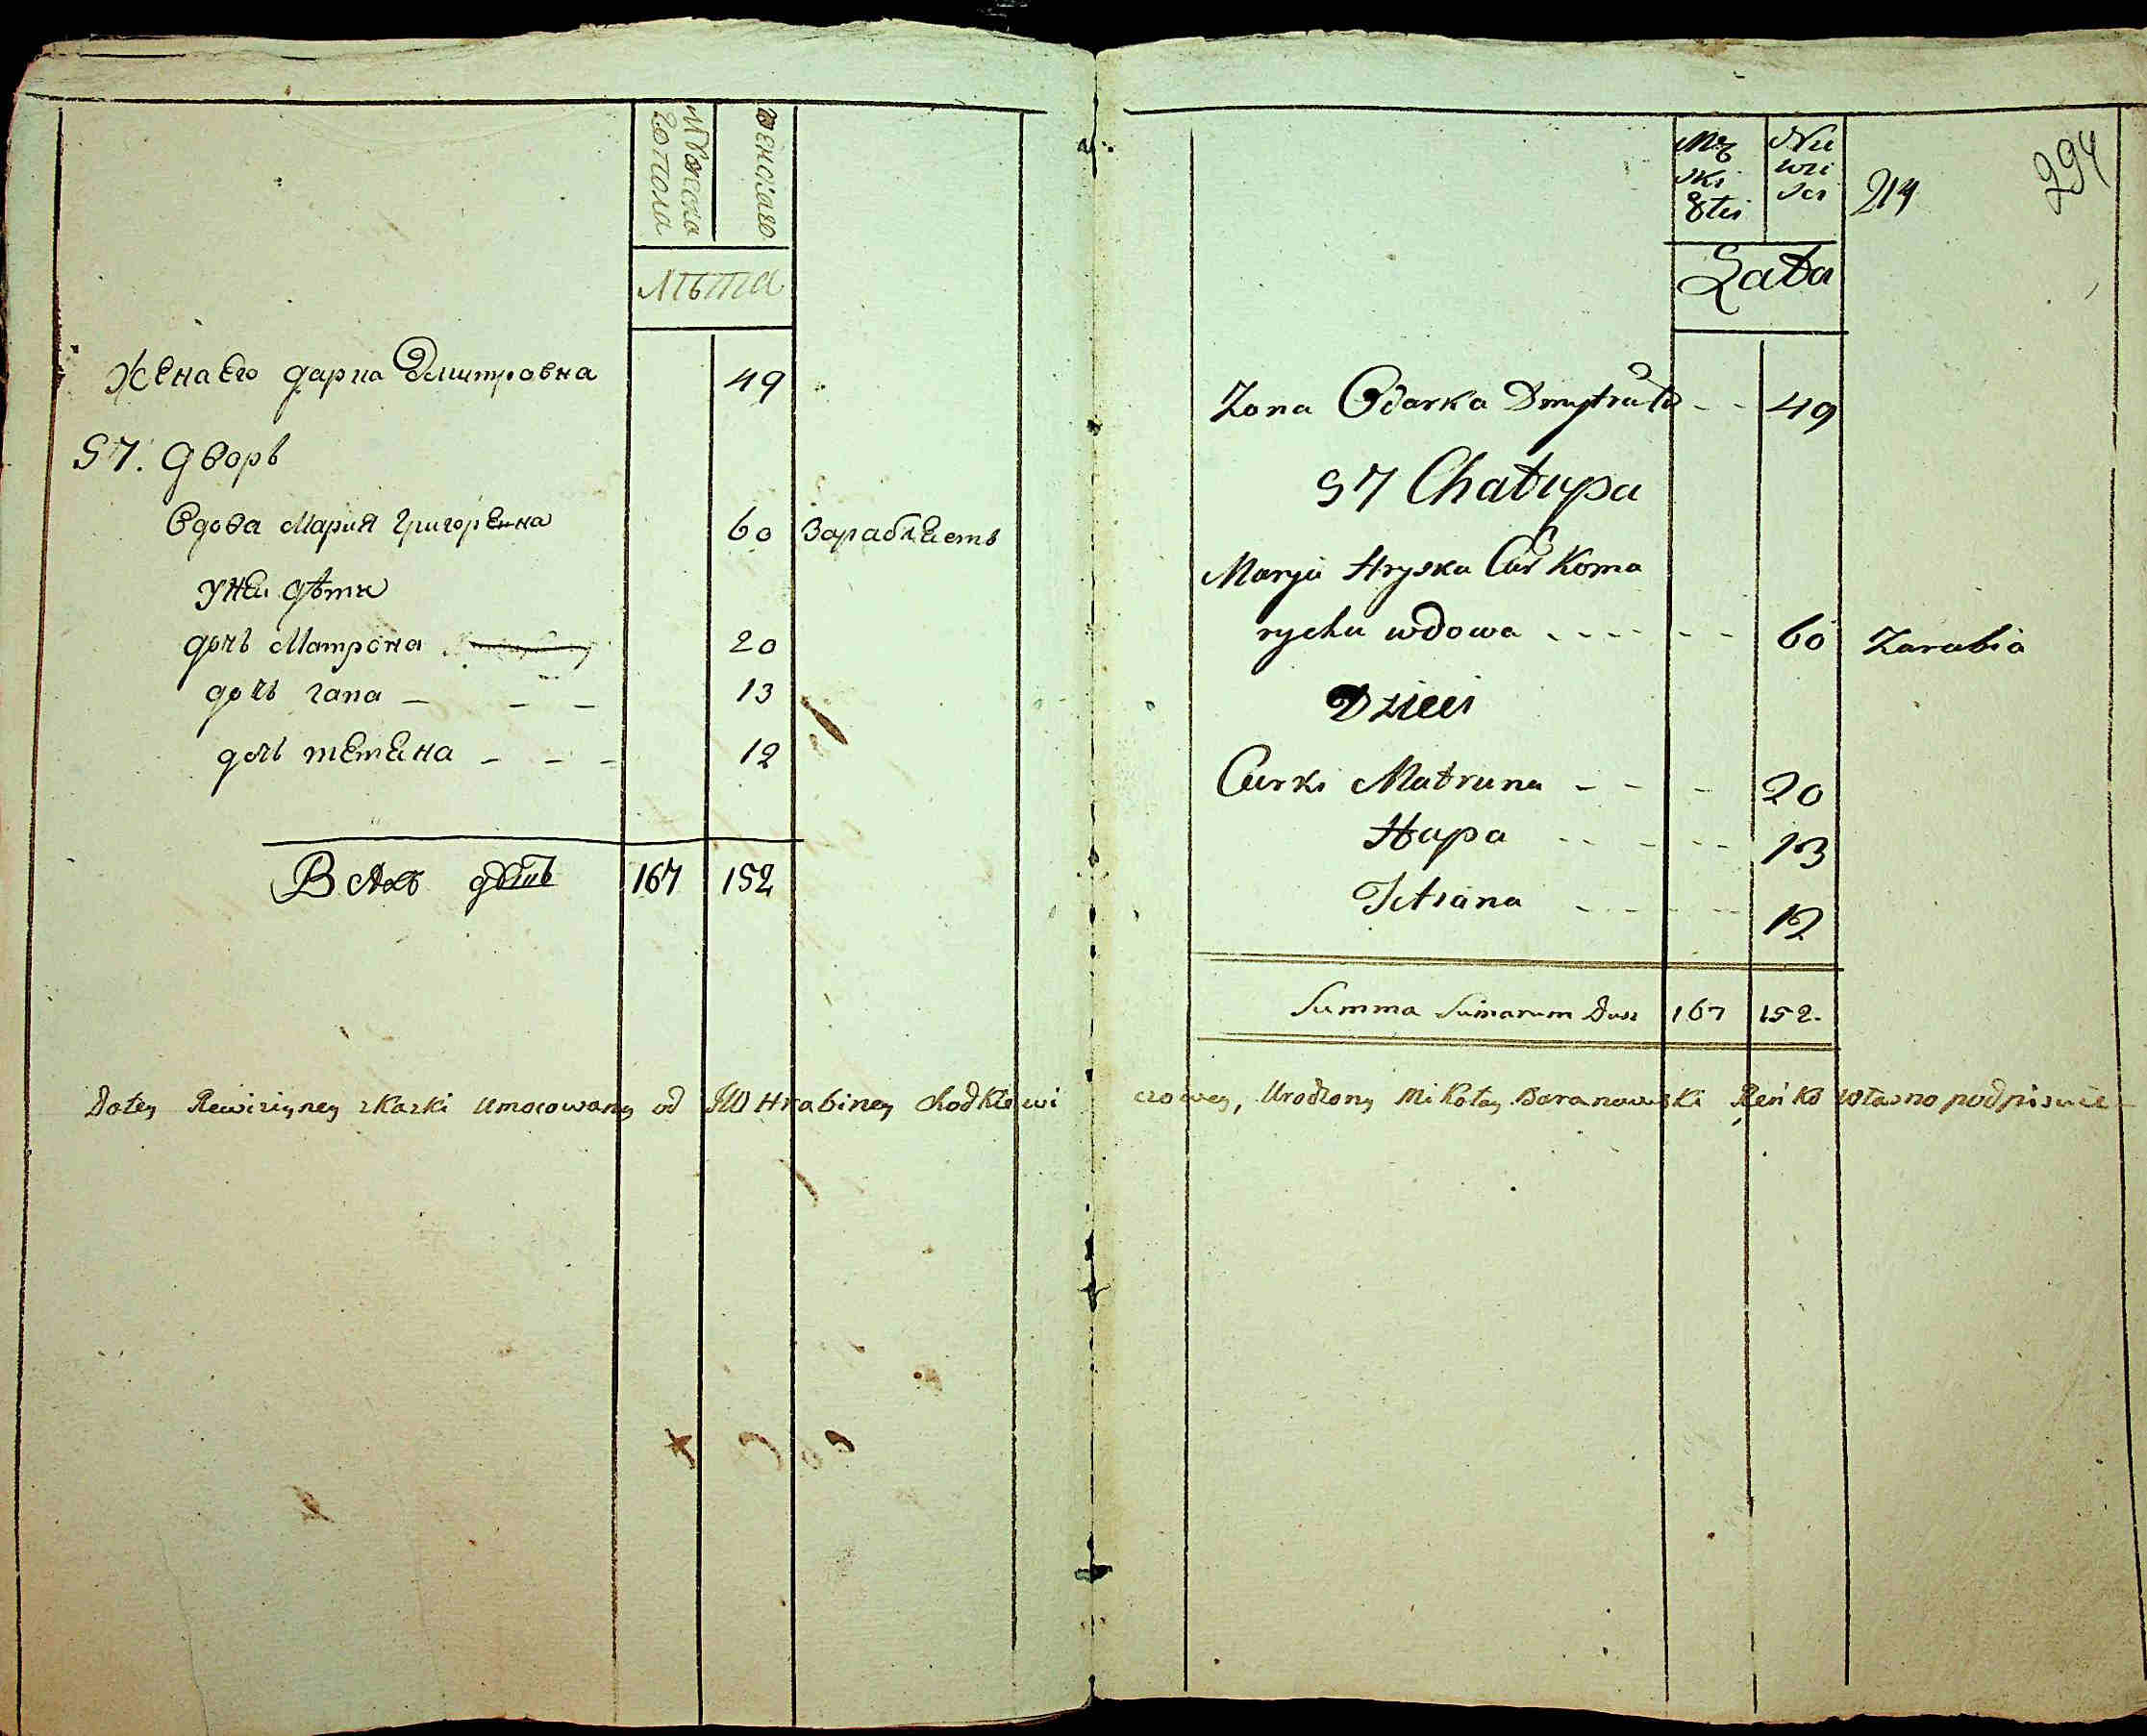 Мужеска
го пола
женскаго
лѣта
Жена его дариа Дмитровна 49
57. дворъ
вдова Мария григорЕвна 60 Зарабляетъ
у неи дѣти
дочь Матрона 20
дочь гапа — — — 13
дочь тетяна — — — 12
Всѣхъ душъ 167 152
Mę
ski
Płci
Nie
wie
sci
214
294
Lata
Zona Odarka Dmytruta - - 49
57 Chałupa
Marya Hryska Cur Koma
rycha wdowa - - - - - - 60 Zarabia
Dzieci
Curki Matruna - - - 20
Hapa - - - - - 13
Tetiana - - - - - 12
Summa Sumarum Dusz 167 152.
Dotey Rewizŷney skazki Umocowany od JW Hrabiney Chodkiewi czowey, Urodzony Mikołay Baranowski Ręńką własno podpisuie